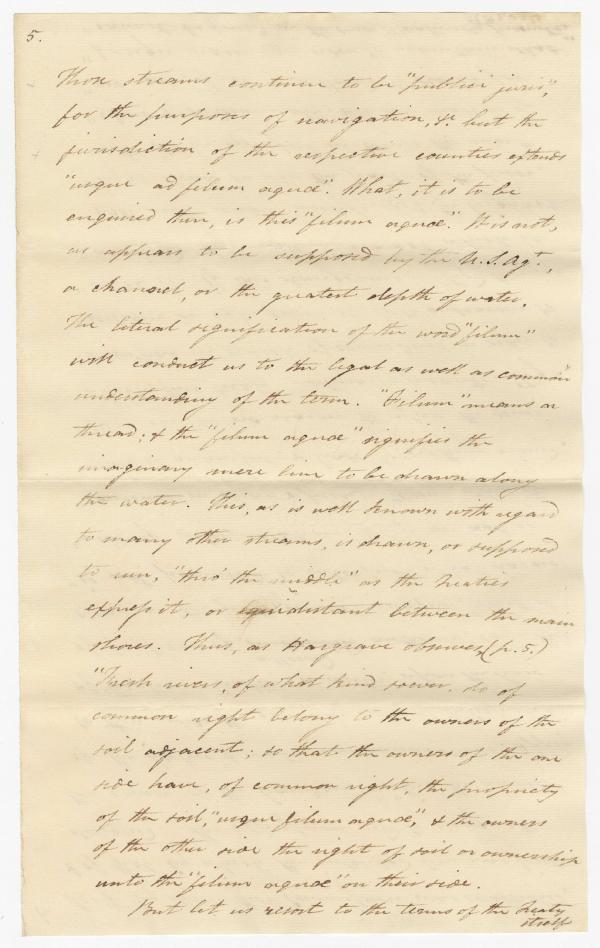 5.
Those streams continue to be "publici juris",
for the purposes of navigation, &c. but the
jurisdiction of the respective counties extends
"usque ad filum aquæ". What, it is to be
enquired then, is this "filum aquæ". It is not,
as appears to be supposed by the U.S. Agt.,
a channel, or the greatest depth of water.
The literal signification of the word "filum"
will conduct us to the legal as well as common
understanding of the term. "Filum" means a
thread; & the "filum aquæ" signifies the
imaginary mere line to be drawn along
the water. This, as is well known with regard
to many other streams, is drawn, or supposed
to run, "thro' the middle" as the Treaties
express it, or equidistant between the main
shores. Thus, as Hargrave observes, (p. 5.)
"Fresh rivers, of what kind soever, do of
common right belong to the owners of the
soil adjacent; so that the owners of the one
side have, of common right, the propriety
of the soil, "usque filum aquæ", & the owners
of the other side the right of soil or ownership
unto the "filum aquæ" on their side.
But let us resort to the terms of the Treaty
itself